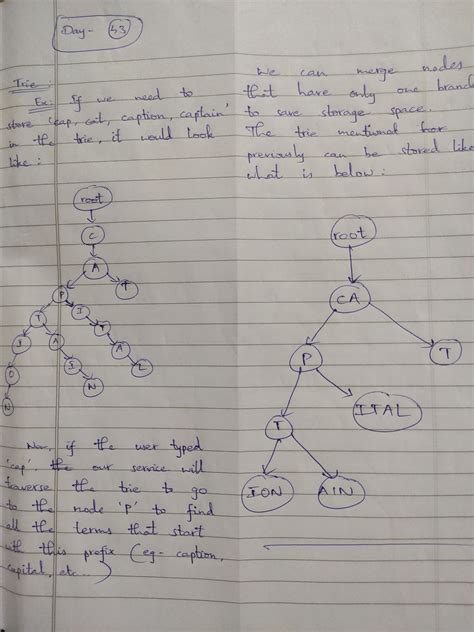 Day- 43
Trie:
Ex: If we need to
store 'cap, cat, caption, captain'
in the trie, it would look
like:
root
C
A
P
T
T
I
I
A
T
O
I
A
N
N
L
Now, if the user typed
'cap', the our service will
traverse the trie to go
to the node 'P' to find
all the terms that start
with this prefix (eg- caption,
capital, etc...)
We can merge nodes
that have only one branch
to save storage space.
The trie mentioned
previously can be stored like
what is below:
root
CA
P
T
T
ITAL
ION
AIN